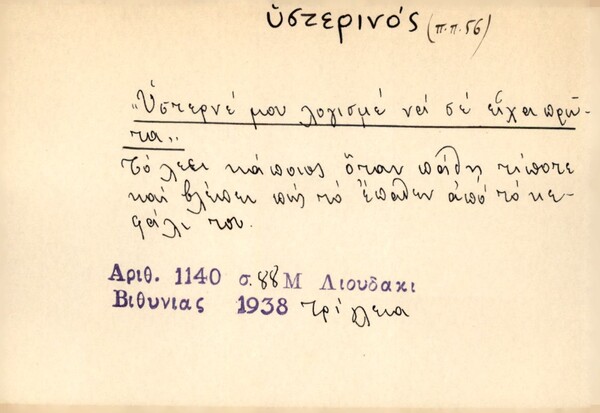 ὑστερινός (π.π. 56)
"Ὑστερνέ μου λογισμέ νά σέ εἶχα πρῶ-
τα"
Τό λέει κάποιος ὅταν πάθη τίποτε
καί βλέπει πώς τό ἔπαθεν ἀπό τό κε-
φάλι του.
Αριθ. 1140 σ. 88 Μ Λιουδακι
Βιθυνιας 1938 Τρίγλεια